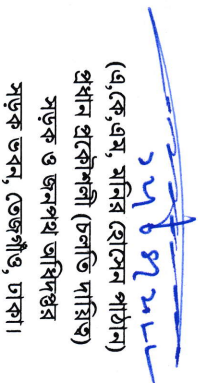 (এ,কে,এম, মনির হোসেন পাঠান)
প্রধান প্রকৌশলী (চলতি দায়িত্ব)
সড়ক ও জনপথ অধিদপ্তর
সড়ক ভবন, তেজগাঁও, ঢাকা।